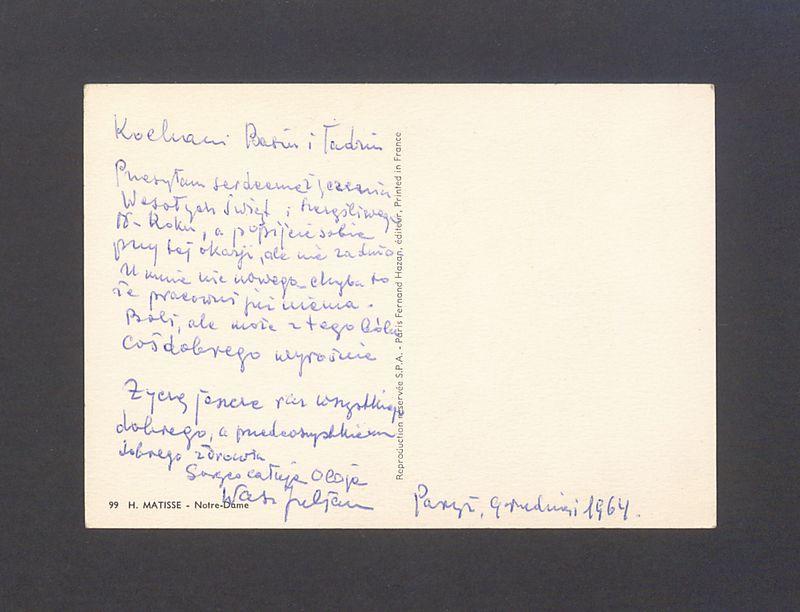 Kochani Basiu i Tadziu
Przesyłam serdeczne życzenia
Wesołych Świąt i szczęśliwego
N-Roku, a popijcie sobie
przy tej okazji, ale nie za dużo
U mnie nic nowego chyba to
że pracowni już niema.
Boli, ale może z tego bólu
coś dobrego wyrośnie
Życzę jeszcze raz wszystkiego
dobrego, a przedewszystkiem
dobrego zdrowia
Gorąco całuję
Wasz
Paryż, grudzień 1964.
Reproduction réservée S.P.A. - Paris Fernand Hazan, éditeur, Printed in France
99 H. MATISSE - Notre-Dame